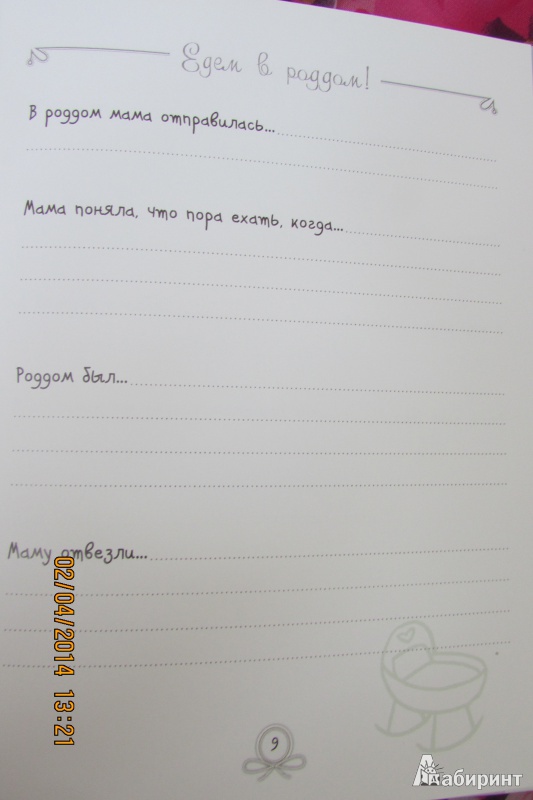 Едем в роддом!
В роддом мама отправилась...
Мама поняла, что пора ехать, когда...
Роддом был...
Маму отвезли...
02/04/2014 13:21
9
Лабиринт